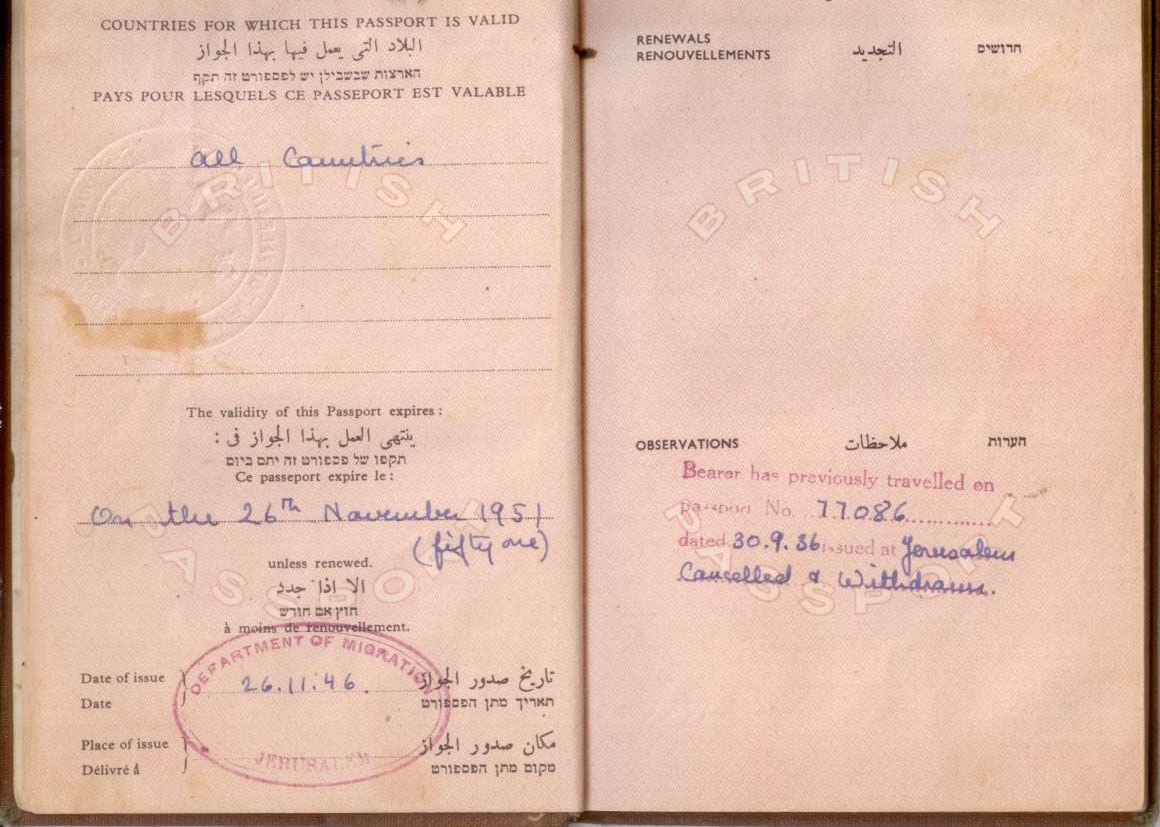 COUNTRIES FOR WHICH THIS PASSPORT IS VALID
البلاد التى يعمل فيها بهذا الجواز
הארצות שבשבילן יש לפספורט זה תקף
PAYS POUR LESQUELS CE PASSEPORT EST VALABLE
All Countries
BRITISH
The validity of this Passport expires :
ينتهى العمل بهذا الجواز فى :
תקפו של פספורט זה יתם ביום
Ce passeport expire le :
On the 26th November 1951
(fifty one)
PASSPORT
unless renewed.
الا اذا جدد
חוץ אם חודש
à moins de renouvellement.
DEPARTMENT OF MIGRATION
Date of issue 26.11.46. تاريخ صدور الجواز
Date תאריך מתן הפספורט
Place of issue مكان صدور الجواز
Délivré à מקום מתן הפספורט
JERUSALEM
RENEWALS التجديد חדושים
RENOUVELLEMENTS
BRITISH
OBSERVATIONS ملاحظات הערות
Bearer has previously travelled on
passport No. 77086
dated 30.9.36 issued at Jerusalem
Cancelled & Withdrawn.
PASSPORT